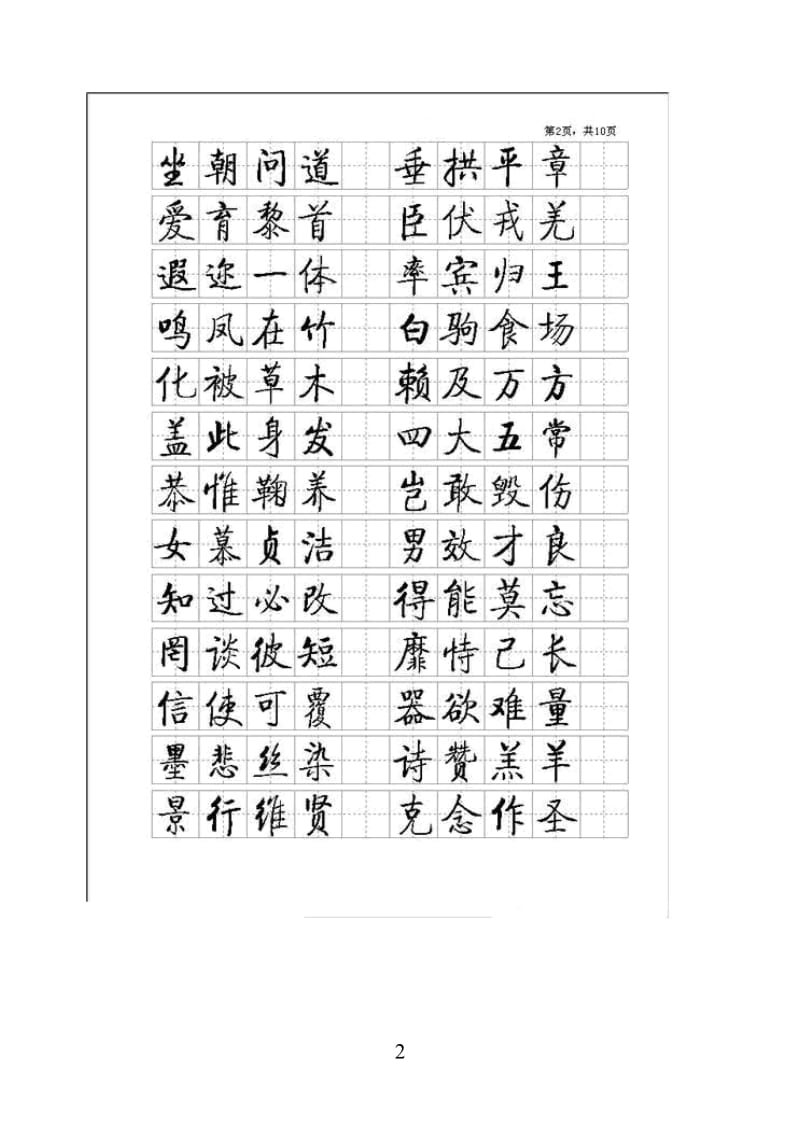 第2页，共10页
坐朝问道 垂拱平章
爱育黎首 臣伏戎羌
遐迩一体 率宾归王
鸣凤在竹 白驹食场
化被草木 赖及万方
盖此身发 四大五常
恭惟鞠养 岂敢毁伤
女慕贞洁 男效才良
知过必改 得能莫忘
罔谈彼短 靡恃己长
信使可覆 器欲难量
墨悲丝染 诗赞羔羊
景行维贤 克念作圣
2